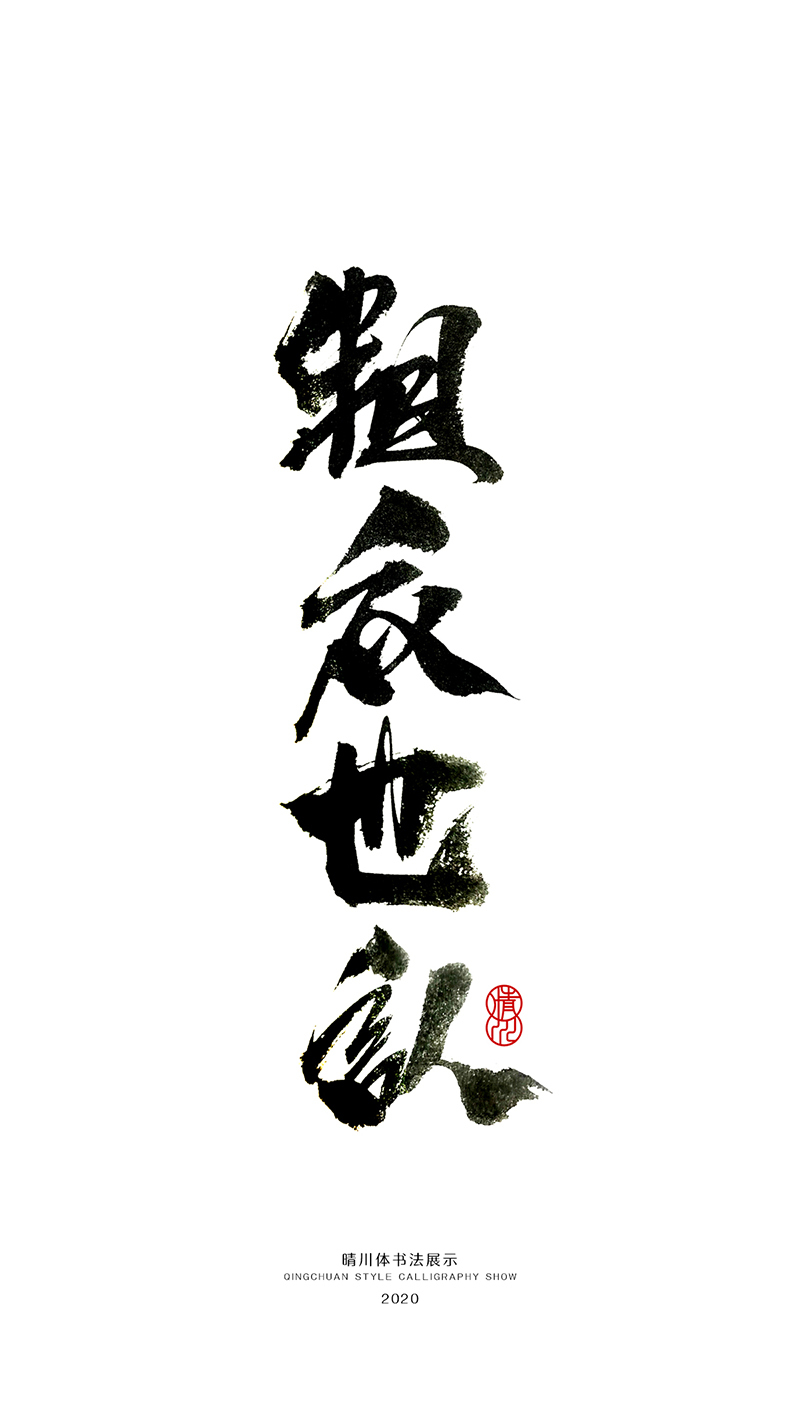 粗衣也认
晴川
晴川体书法展示
QINGCHUAN STYLE CALLIGRAPHY SHOW
2020